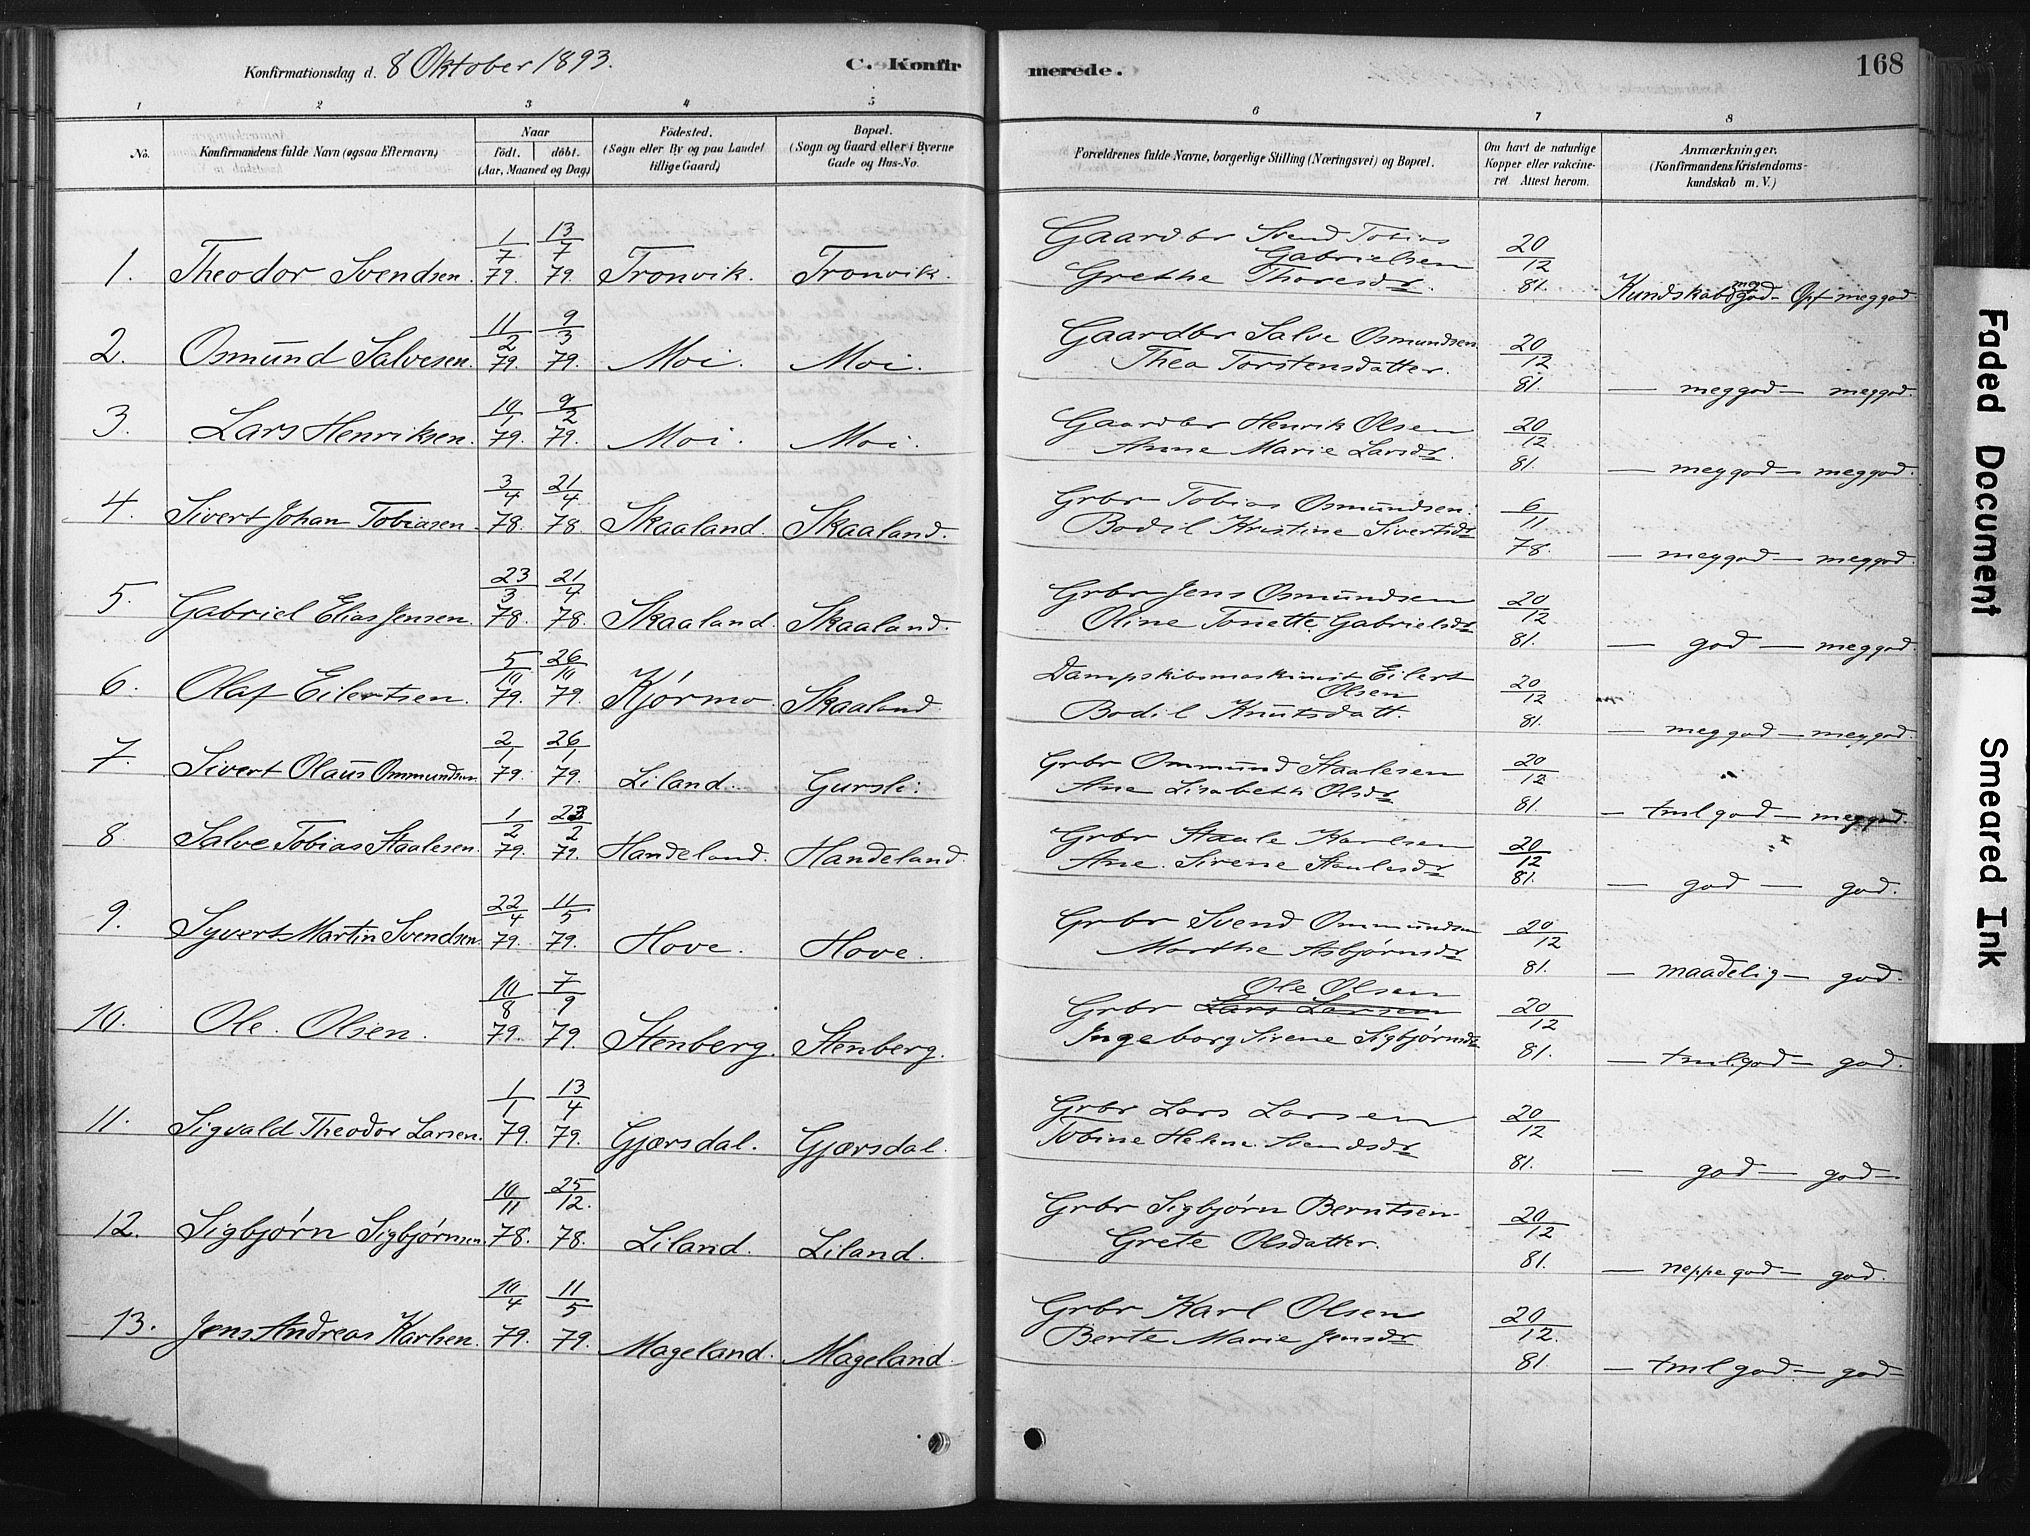 Konfirmationsdag d. 8 Oktober 1893.
C. Konfirmerede.
168
1 2 3 4 5 6 7 8
No.
Konfirmandens fulde Navn (ogsaa Efternavn)
Naar
födt. döbt.
(Aar, Maaned og Dag)
Födested.
(Sogn eller By og paa Landet
tillige Gaard)
Bopæl.
(Sogn og Gaard eller i Byerne
Gade og Hus-No.
Forældrenes fulde Navne, borgerlige Stilling (Næringsvei) og Bopæl.
Om havt de naturlige
Kopper eller vakcine-
ret Attest herom.
Anmærkninger.
(Konfirmandens Kristendoms-
kundskab m. V.)
1. Theodor Svendsen. 1/7 79. 13/7 79. Tronvik. Tronvik. Gaardbr Svend Tobias Gabrielsen
Grethe Thoresdr 20/12 81. Kundskab meg god - Opf meg god
2. Osmund Salvesen. 11/2 79. 9/3 79. Moi. Moi. Gaardbr Salve Osmundsen
Thea Torstensdatter. 20/12 81. — meg god — meg god.
3. Lars Henriksen. 10/1 79. 9/2 79. Moi. Moi. Gaardbr Henrik Olsen
Anne Marie Larsdr. 20/12 81. — meg god — meg god.
4. Sivert Johan Tobiasen 3/4 78. 21/4 78. Skaaland. Skaaland. Grbr Tobias Osmundsen.
Bodil Kristine Sivertsdr 6/11 78. — meg god — meg god.
5. Gabriel Elias Jensen. 23/3 78. 21/4 78. Skaaland. Skaaland. Grbr Jens Osmundsen
Oline Tonette Gabrielsdr 20/12 81. — god — meg god
6. Olaf Eilertsen. 5/10 79. 26/10 79. Kjørmo. Skaaland. Dampskibsmaskinist Eilert Olsen
Bodil Knutsdatt. 20/12 81. — meg god — meg god.
7. Sivert Olaus Ommundsen 2/1 79. 26/1 79. Liland. Gursli. Grbr Ommund Staalesen
Ane Lisabeth Olsdr 20/12 81. — tml god — meg god.
8. Salve Tobias Staalesen. 1/2 79. 23/2 79. Handeland. Handeland. Grbr Staale Karlsen
Ane Sirene Staalesdr 20/12 81. — god — god.
9. Syvert Martin Svendsen. 22/4 79. 11/5 79. Hove. Hove. Grbr Svend Ommundsen
Marthe Asbjørnsdr 20/12 81. — maadelig — god.
10. Ole Olsen. 10/8 79. 7/9 79 Stenberg. Stenberg. Grbr Lars Larsen Ole Olsen
Ingeborg Sirene Sigbjørnsdr 20/12 81. — tml. god — god.
11. Sigvald Theodor Larsen. 1/1 79. 13/4 79. Gjærsdal. Gjærsdal. Grbr Lars Larsen
Tobine Helene Svendsdr 20/12 81. — god — god —
12. Sigbjørn Sigbjørnsen 10/11 78. 25/12. 78. Liland. Liland. Grbr Sigbjørn Berntsen
Grete Olsdatter. 20/12 81. — neppe god — god.
13. Jens Andreas Karlsen. 10/4 79. 11/5 79. Mageland. Mageland. Grbr Karl Olsen
Berte Marie Jensdr 20/12. 81. — tml god — god —
Faded Document
Smeared Ink